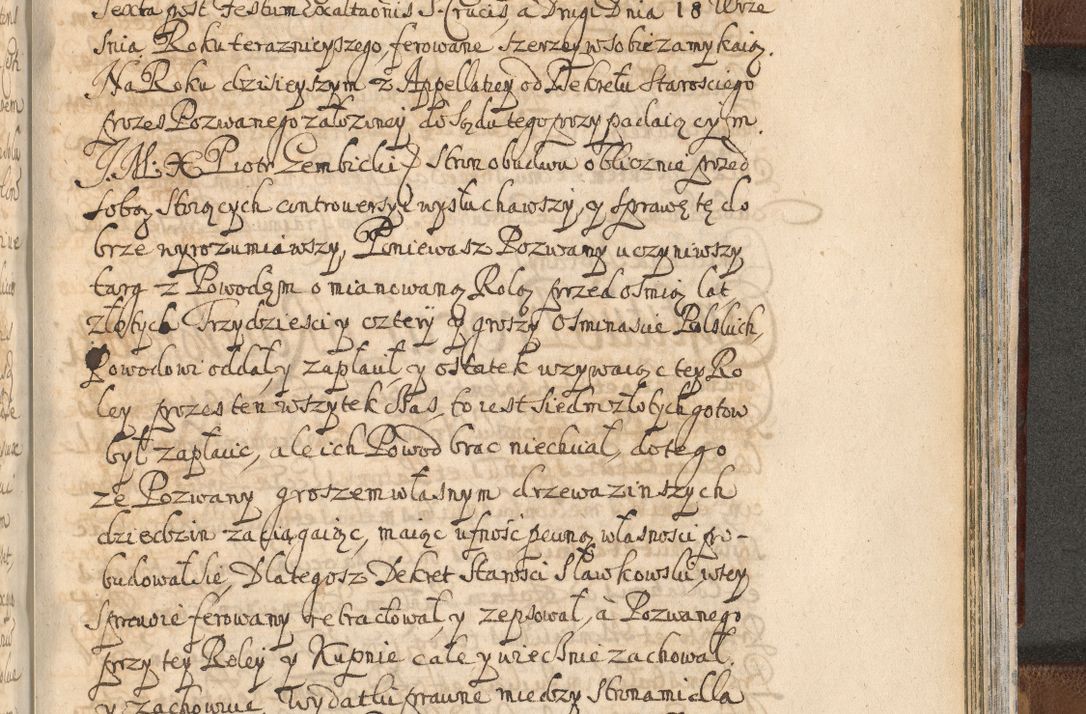 Sexta post Festum Exaltaonis S. Crucis, a Drugi Dnia 18 Wrze
śnia Roku teraznieyszego, ferowane szerzey w sobie zamykaią.
Na Roku dzisieyszym z Appellatiey od Dekretu Starosciego
przes Pozwanego założoney do sądu tego przypadaiącym.
J. M. X Piotr Gembicki stron obudwu oblicznie przed
sobą stoiących controversyi wysłuchawszy, y sprawę tę do
brze wyrozumiawszy, Poniewasz Pozwany uczyniwszy
targ z Powodem o mianowaną Rolą przed ośmią lat,
złotych Trzydzieści y cztery y groszy osminascie Polskich,
Powodowi oddał, y zapłacił, y ostatek wzywaiąc tey Ro
ley przes ten wszytek czas, to iest siedm złotych gotow
był zapłacic, ale ich Powod brac niechciał, do tego
ze Pozwany groszem własnym drzewa z inszych
dziedzin zaciągaiąc, maiąc ufność pewną własności po-
budował sie, Dlategosz Dekret Starości Sławkowski, w tey
sprawie ferowany retractował, y zepsował, a Pozwanego
przy tey Roley y Kupnie cale y wiecznie zachował.
y zachowuie, Wydatki prawne miedzy stronami dla